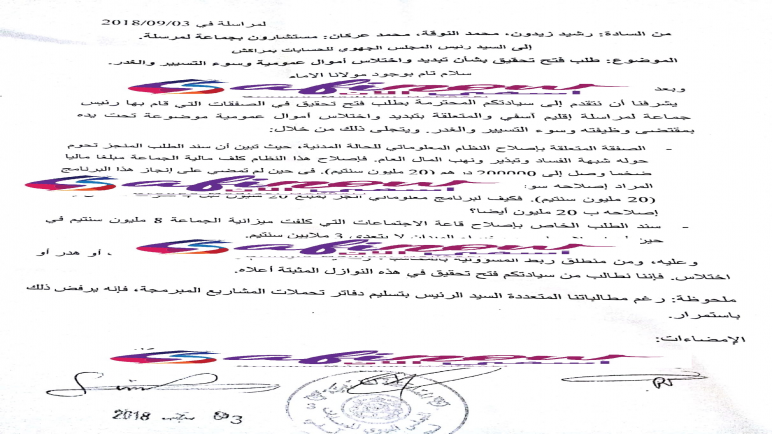 لمراسلة في 2018/09/03
من السادة: رشيد زيدون، محمد النوقة، محمد عركان: مستشارون بجماعة لمرسلة.
إلى السيد رئيس المجلس الجهوي للحسابات بمراكش
الموضوع: طلب فتح تحقيق بشأن تبديد واختلاس أموال عمومية وسوء التسيير والغدر.
سلام تام بوجود مولانا الامام
وبعد
Sabinews
يشرفنا أن نتقدم إلى سيادتكم المحترمة بطلب فتح تحقيق في الصفقات التي قام بها رئيس
جماعة لمراسلة إقليم آسفي والمتعلقة بتبديد واختلاس أموال عمومية موضوعة تحت يده
بمقتضى وظيفته وسوء التسيير والغدر. ويتجلى ذلك من خلال:
- الصفقة المتعلقة بإصلاح النظام المعلوماتي للحالة المدنية، حيث تبين أن سند الطلب المنجز تحوم
حوله شبهة الفساد وتبذير ونهب المال العام. فإصلاح هذا النظام كلف مالية الجماعة مبلغا ماليا
ضخما وصل إلى 200000 د.هم (20 مليون سنتيم). في حين لم تمضي على إنجاز هذا البرنامج
المراد إصلاحه سو
Sabinews
(20 مليون سنتيم). فكيف لبرنامج معلوماتي انجز بمبلغ 20
إصلاحه ب 20 مليون أيضا؟
- سند الطلب الخاص بإصلاح قاعة الاجتماعات التي كلفت ميزانية الجماعة 8 مليون سنتيم في
حين لا يتعدى 3 ملايين سنتيم.
Sabinews
وعليه، ومن منطلق ربط المسؤولية ، أو هدر أو
اختلاس. فإننا نطالب من سيادتكم فتح تحقيق في هذه النوازل المثبتة أعلاه.
ملحوظة: رغم مطالباتنا المتعددة السيد الرئيس بتسليم دفاتر تحملات المشاريع المبرمجة، فإنه يرفض ذلك
باستمرار.
الإمضاءات:
Sabinews
2018